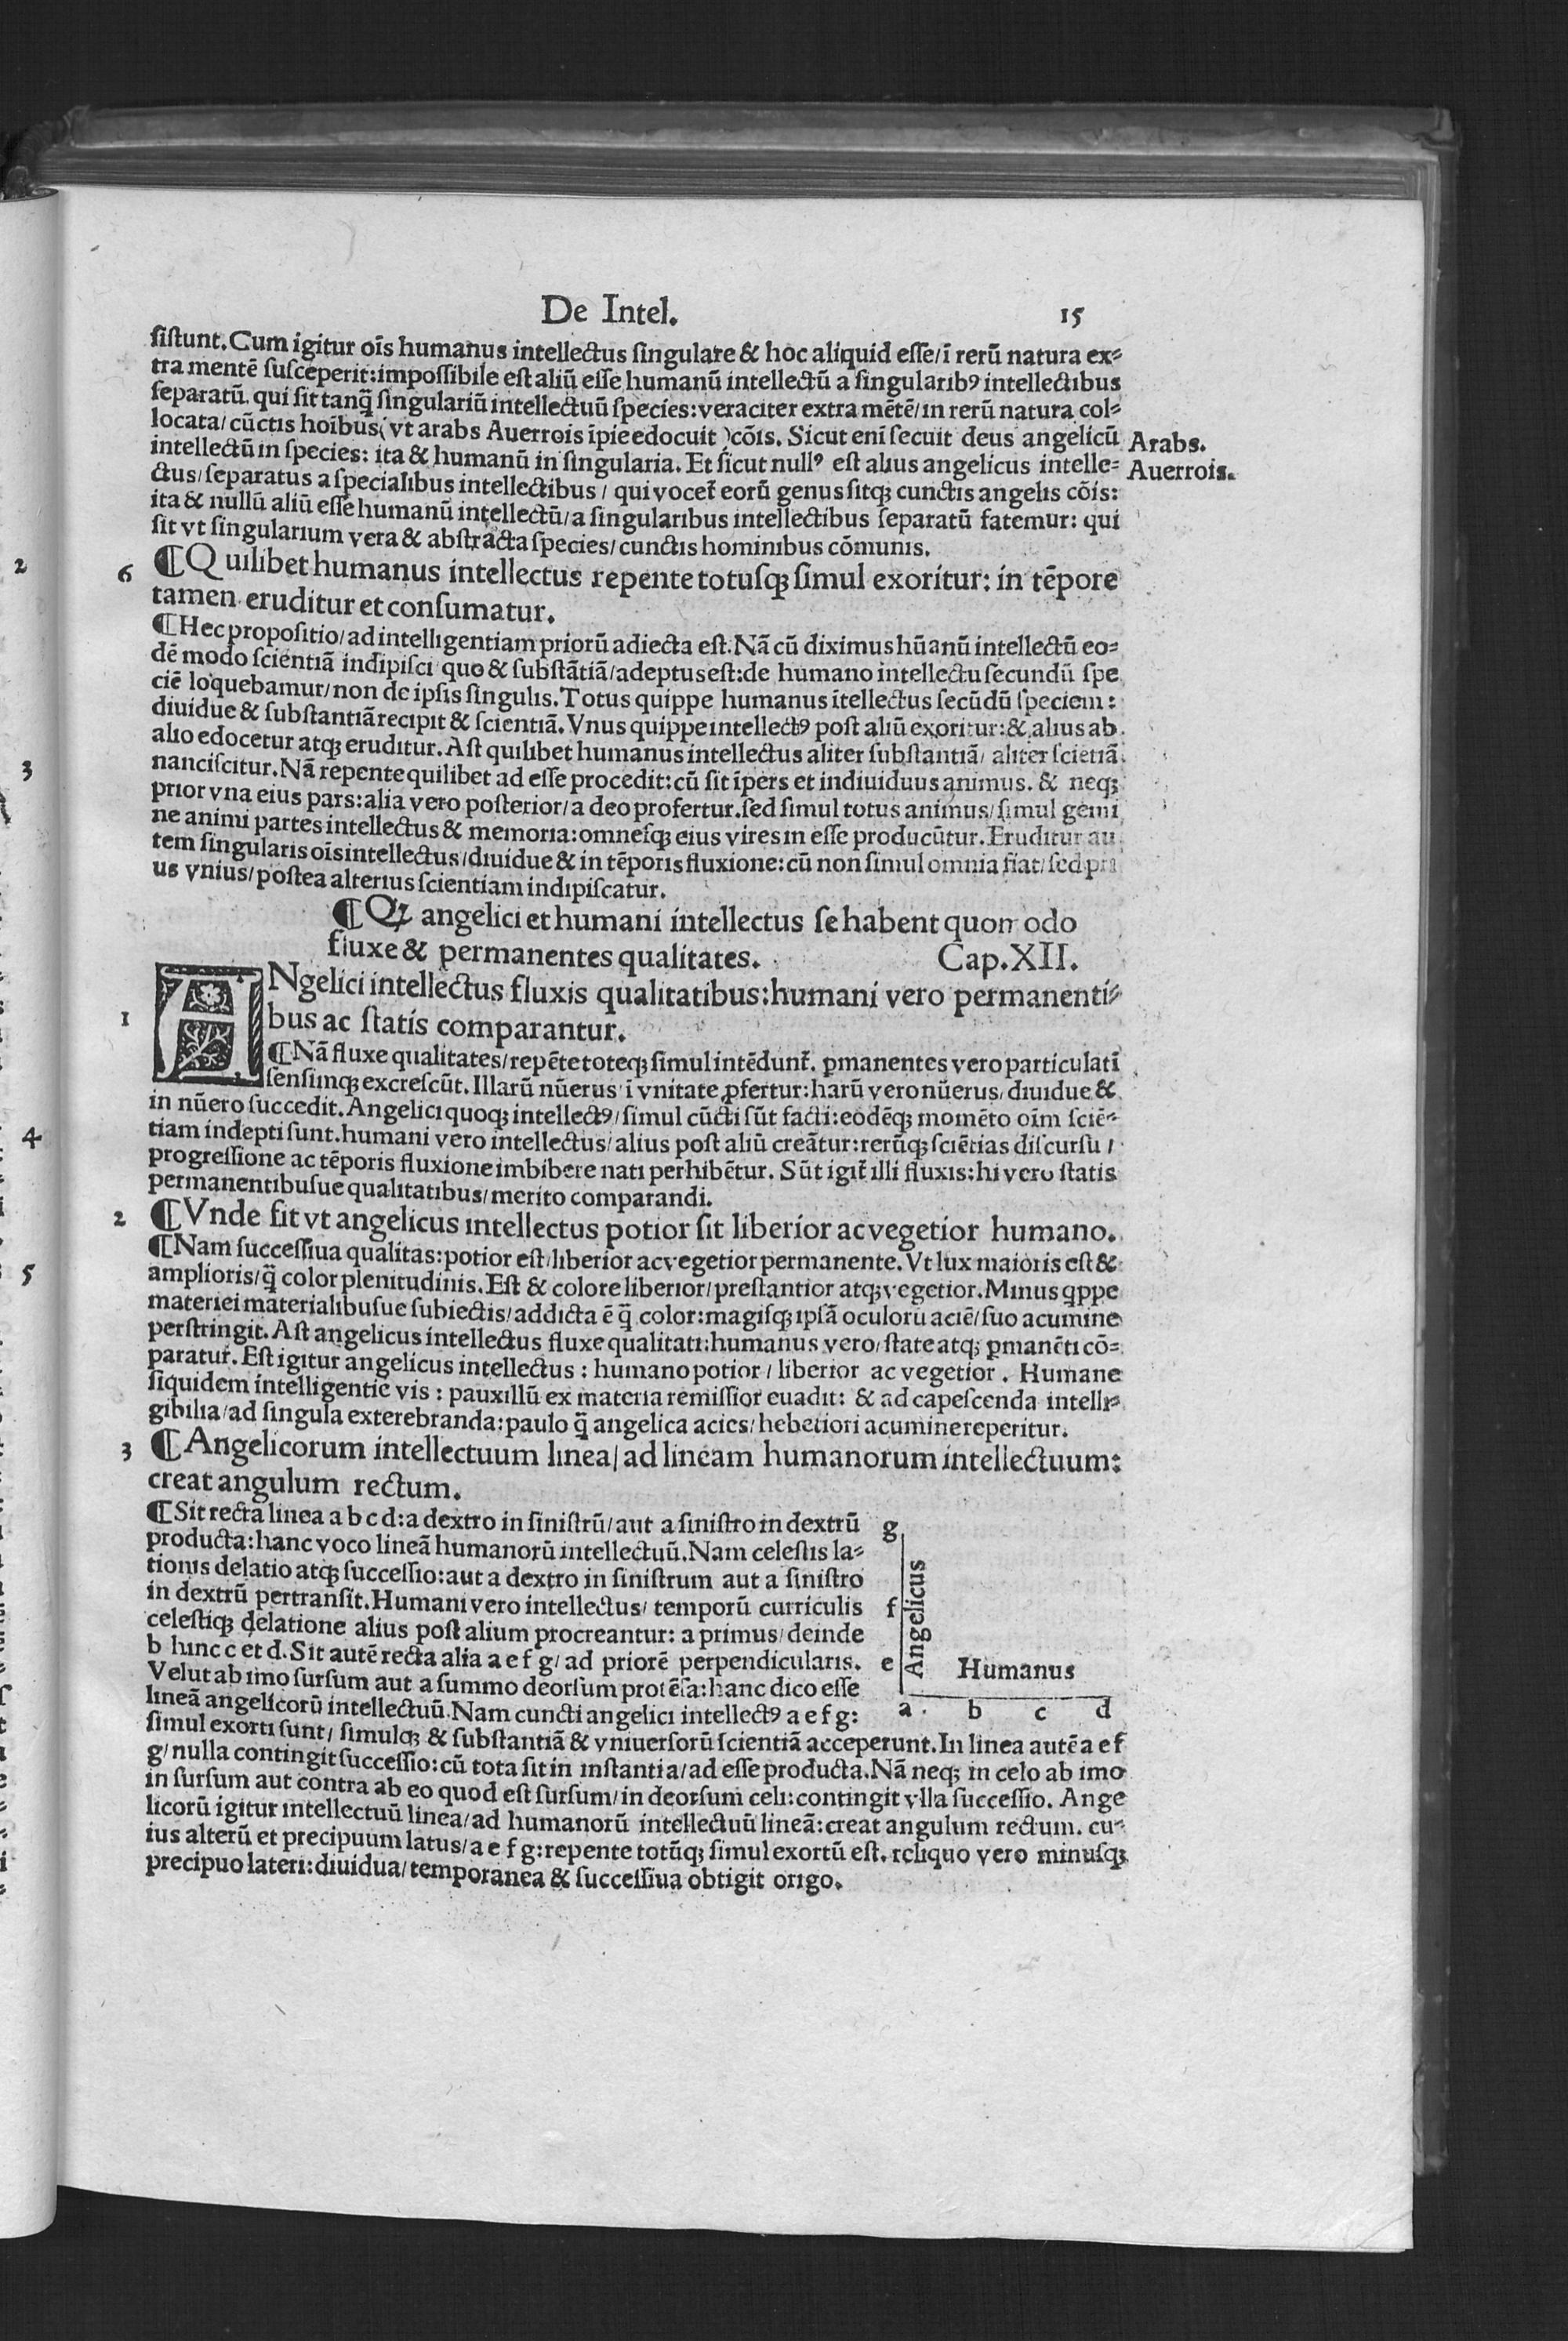 De Intel. 15
sistunt. Cum igitur oīs humanus intellectus singulare & hoc aliquid esse/ī rerū natura ex⸗
tra mentē susceperit: impossibile est aliū esse humanū intellectū a singularibꝰ intellectibus
separatū. qui sit tanq̄ singulariū intellectuū species: veraciter extra mētē/in rerū natura col⸗
locata/cūctis hoībus(vt arabs Auerrois īpie edocuit)cōis. Sicut enī secuit deus angelicū
Arabs.
intellectū in species: ita & humanū in singularia. Et sicut nullꝰ est alius angelicus intelle⸗
Auerrois.
ctus/separatus a specialibus intellectibus/qui vocet̄ eorū genus sitqꝫ cunctis angelis cōis:
ita & nullū aliū esse humanū intellectū/a singularibus intellectibus separatū fatemur: qui
sit vt singularium vera & abstracta species/cunctis hominibus cōmunis.
6 ¶Quilibet humanus intellectus repente totusqꝫ simul exoritur: in tēpore
tamen eruditur et consumatur.
¶Hec propositio/ad intelligentiam priorū adiecta est. Nā cū diximus hūanū intellectū eo⸗
dē modo scientiā indipisci quo & substātiā/adeptus est: de humano intellectu secundū spe
ciē loquebamur/non de ipsis singulis. Totus quippe humanus ītellectus secūdū speciem:
diuidue & substantiā recipit & scientiā. Vnus quippe intellectꝰ post aliū exoritur: & alius ab
alio edocetur atqꝫ eruditur. Ast quilibet humanus intellectus aliter substantiā/aliter sciētiā
nanciscitur. Nā repente quilibet ad esse procedit: cū sit īpers et indiuiduus animus. & neqꝫ
prior vna eius pars: alia vero posterior/a deo profertur. sed simul totus animus/simul gemi
ne animi partes intellectus & memoria: omnesqꝫ eius vires in esse producūtur. Eruditur au
tem singularis oīs intellectus/diuidue & in tēporis fluxione: cū non simul omnia fiat/sed pri
us vnius/postea alterius scientiam indipiscatur.
¶Qꝫ angelici et humani intellectus se habent quomodo
fluxe & permanentes qualitates. Cap. XII.
1 ANgelici intellectus fluxis qualitatibus: humani vero permanenti⸗
bus ac statis comparantur.
¶Nā fluxe qualitates/repēte toteqꝫ simul intēdunt̄. ꝑmanentes vero particulatī
sensimqꝫ excrescūt. Illarū nūerus ī vnitate ꝓfertur: harū vero nūerus/diuidue &
in nūero succedit. Angelici quoqꝫ intellectꝰ/simul cūcti sūt facti: eodēqꝫ momēto oīm sciē⸗
tiam indepti sunt. humani vero intellectus/alius post aliū creātur: rerūqꝫ sciētias discursu/
progressione ac tēporis fluxione imbibere nati perhibētur. Sūt igit̄ illi fluxis: hi vero statis
permanentibusue qualitatibus/merito comparandi.
2 ¶Vnde fit vt angelicus intellectus potior sit liberior ac vegetior humano.
¶Nam successiua qualitas: potior est/liberior ac vegetior permanente. Vt lux maioris est &
amplioris/q̄ color plenitudinis. Est & colore liberior/prestantior atqꝫ vegetior. Minus qppe
materiei materialibusue subiectis/addicta ē q̄ color: magisqꝫ ipsā oculorū aciē/suo acumine
perstringit. Ast angelicus intellectus fluxe qualitati: humanus vero/state atqꝫ ꝑmanēti cō⸗
paratur̄. Est igitur angelicus intellectus: humano potior/liberior ac vegetior. Humane
siquidem intelligentie vis: pauxillū ex materia remissior euadit: & ad capescenda intelli⸗
gibilia/ad singula exterebranda: paulo q̄ angelica acies/hebetiori acumine reperitur.
3 ¶Angelicorum intellectuum linea/ad lineam humanorum intellectuum:
creat angulum rectum.
¶Sit recta linea a b c d: a dextro in sinistrū/aut a sinistro in dextrū
producta: hanc voco lineā humanorū intellectuū. Nam celestis la⸗
tionis delatio atqꝫ successio: aut a dextro in sinistrum aut a sinistro
in dextrū pertransit. Humani vero intellectus/temporū curriculis
celestiqꝫ delatione alius post alium procreantur: a primus/deinde
b hinc c et d. Sit autē recta alia a e f g/ad priorē perpendicularis.
Velut ab imo sursum aut a summo deorsum protēsa: hanc dico esse
lineā angelicorū intellectuū. Nam cuncti angelici intellectꝰ a e f g:
simul exorti sunt/simulqꝫ & substantiā & vniuersorū scientiā acceperunt. In linea autē a e f
g/nulla contingit successio: cū tota sit in instanti a/ad esse producta. Nā neqꝫ in celo ab imo
in sursum aut contra ab eo quod est sursum/in deorsum celi: contingit vlla successio. Ange
licorū igitur intellectuū linea/ad humanorū intellectuū lineā: creat angulum rectum. cu⸗
ius alterū et precipuum latus/a e f g: repente totūqꝫ simul exortū est. reliquo vero minusqꝫ
precipuo lateri: diuidua/temporanea & successiua obtigit origo.
g
f
e
Angelicus
Humanus
a b c d
2
3
4
5